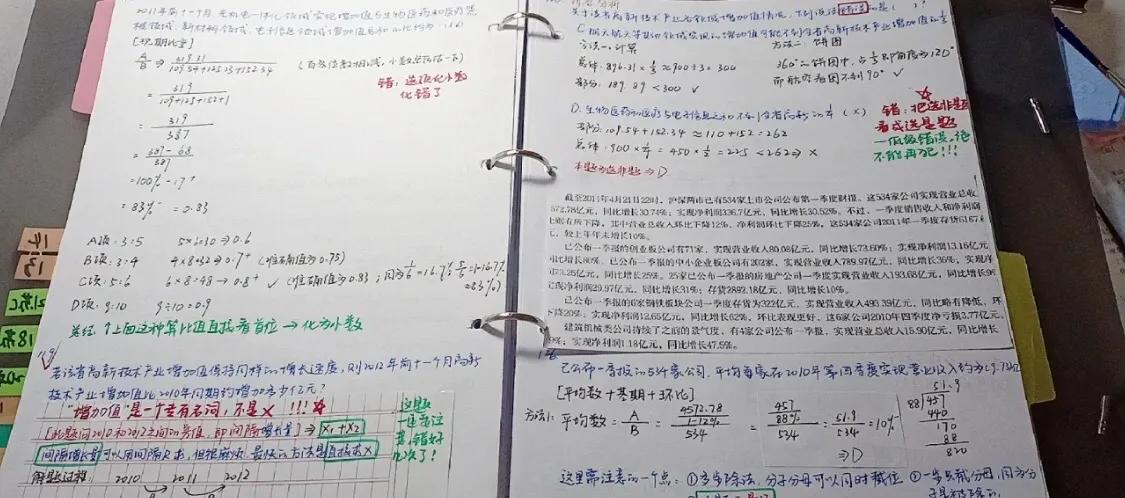 2011年前十一月,光机电一体化领域实现增加值与生物医药和医疗器
械领域、新材料领域、电子信息领域增加值总和的比约为:
[现期比重]
A/B ⇒ 319.31/109.54+125.23+152.34
错:选项化小数
化错了
= 319/109+125+152+1
= 319/387
= 387-68/387
=100%-17+
=83% = 0.83
A项:3:5 5×6=30⇒0.6
B项:3:4 4×8=32⇒0.7+ (准确值为0.75)
C项:5:6 6×8=48→0.8+ ✓ (准确值为0.83;因为1/6=16.7% 5/6=1-16.7%
=83%)
D项:9:10 9÷10=0.9
总结:上面这种算比值直接看首位→化为小数
若该省高新技术产业增加值保持同样的增长速度,则2012年前十一个月高新
技术产业增加值比2010年同期约增加多少亿元?
"增加值"是一个专有名词,不是x !!!
[此题问2010和2012之间的差值,即间隔增长量]⇒ x1+x2
间隔增长量可以用间隔
解题过程: 2010 2011 2012
这题
一定需注
意,错好
几次了!
关于该省高新技术产业各领域增加值情况,下列说法有误的是( )?
方法一:计算 方法二:饼图
总体:896.31×1/3≈900÷3=300
部分:189.89<300 ✓
360°饼图中,占1/3即角度为120°
D.生物医药和医疗与电子信息之和不到全省高新的1/4 (×)
部分:109.54+152.34≈110+152=262
总体:900×1/4=450×1/2=225<262⇒×
本题为选非题⇒D
错:把选非题
看成选是题
一低级错误,绝
不能再犯!!!
截至2011年4月21日22时,沪深两市已有534家上市公司公布第一季度财报。这534家公司实现营业总收
572.78亿元,同比增长30.74%;实现净利润336.7亿元,同比增长30.52%。不过,一季度销售收入和净利润
都有所下降,其中营业总收入环比下降12%,净利润环比下降25%,这534家公司2011年一季度存货6167.6
,较上年年末增长10%。
已公布一季报的创业板公司有71家,实现营业收入80.08亿元,同比增长73.60%;实现净利润13.16亿元
同比增长80%。已公布一季报的中小企业板公司有202家,实现营业收入789.97亿元,同比增长36%;实现净
73.25亿元,同比增长25%。25家已公布一季报的房地产公司一季度实现营业收入193.68亿元,同比增长9
实现净利润29.97亿元,同比增长31%;存货2892.18亿元,同比增长10%。
已公布一季报的6家钢铁板块公司一季度存货为322亿元,实现营业收入490.39亿元,同比略有降低,环
下降20%,实现净利润12.65亿元,同比增长62%,环比表现更好,这6家公司2010年四季度净亏损3.77亿元。
建筑机械类公司持续了之前的景气度,有4家公司公布一季报,实现营业总收入15.90亿元,同比增长
%;实现净利润1.18亿元,同比增长47.5%。
已公布一季报的534家公司,平均每家在2010年第四季度实现营业收入约为(9.73)亿
[平均数+基期+环比]
方法1:平均数=A/B= 4572.78/1-12%/534 = 457/88%/534 = 51.9/534 =10%-
⇒D
51.9
88/457
440
170
88
820
这里需注意的一个点:①多步除法,分子分母可以同时截位 ②一步只截分母